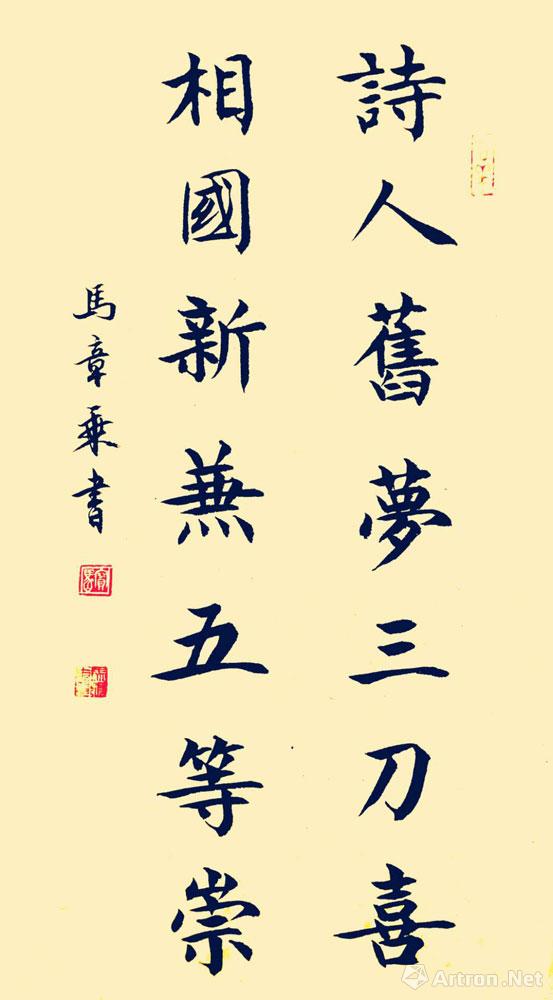 詩人舊夢三刀喜
相國新兼五等崇
馬章乘書
Artron.Net